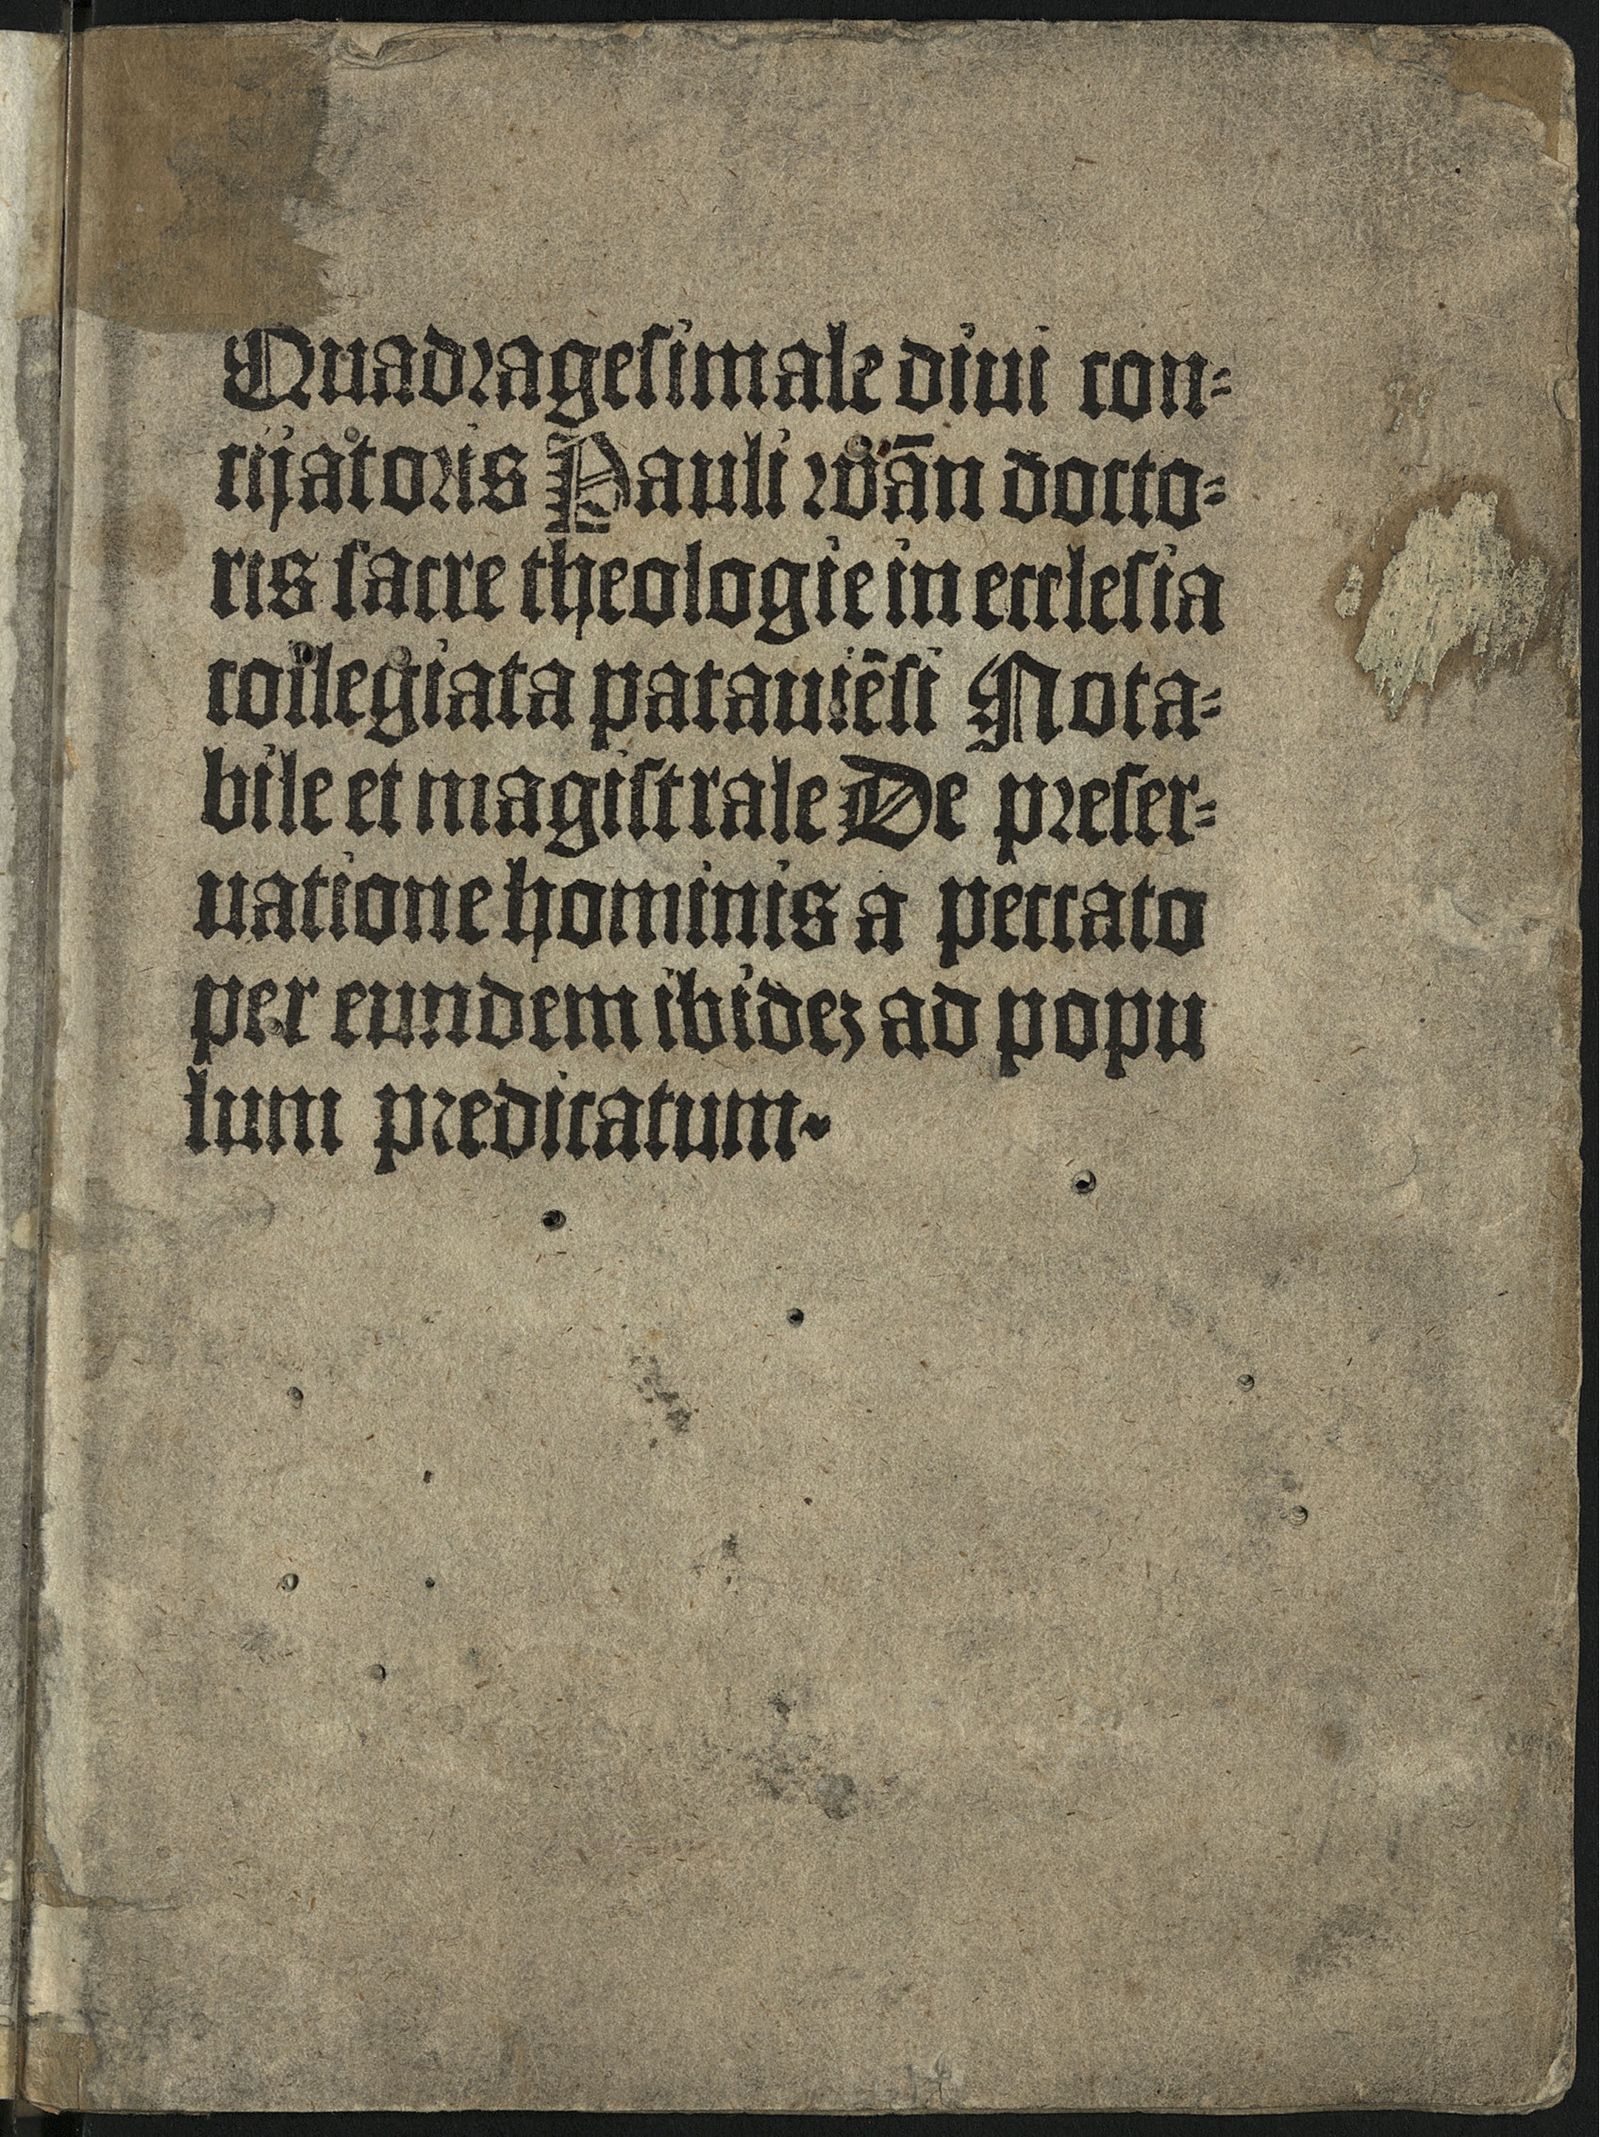 Quadragesimale diui con=
cijatoris Pauli wãn docto=
ris sacre theologie in ecclesia
collegiata patauiẽsi Nota=
bile et magistrale De preser=
uatione hominis a peccato
per eundem ibideʒ ad popu
lum predicatum.